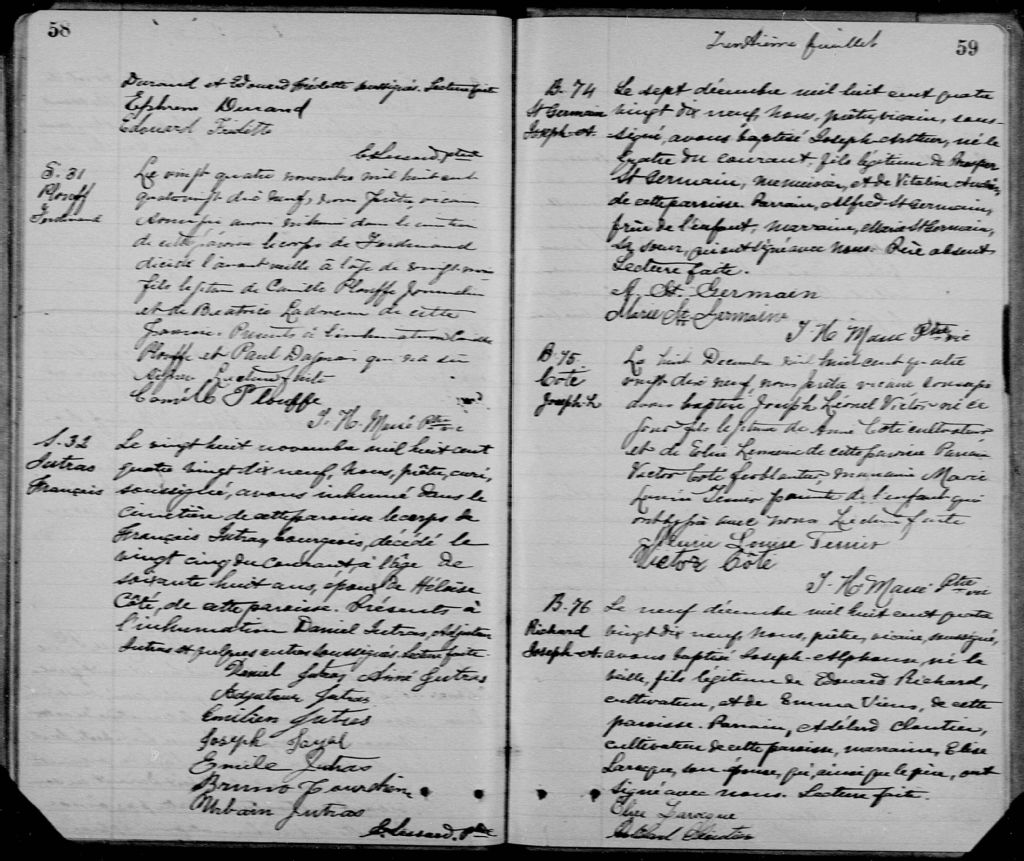 58
Durand et Edouard Fredette soussignés. Lecture faite
Ephrem Durand
Edouard Fredette
C. Lessard ptre
S. 31
Plouff
Ferdinand
Le vingt quatre novembre mil huit cent
quatrevingt dix neuf, nous Prêtre, vicaire
soussigné avons inhumé dans le cimetière
de cette paroisse le corps de Ferdinand
décédé l'avant veille à l'âge de vingt
fils légitime de Camille Plouffe
et de Beatrice de cette
paroisse. Présents à l'inhumation Camille
Plouffe et Paul qui n'a su
signer Lecture faite
Camille Plouffe
J. H. Marié Ptre vic
S. 32
Jutras
François
Le vingt huit novembre mil huit cent
quatre vingt dix neuf, Nous, prêtre, curé,
soussigné, avons inhumé dans le
cimetière de cette paroisse le corps de
François Jutras, bourgeois, décédé le
vingt cinq du courant, à l'âge de
soixante huit ans, époux de Héloïse
Côté, de cette paroisse. Présents à
l'inhumation Daniel Jutras, Adjuteur
Jutras et quelques autres soussignés. Lecture faite
Daniel Jutras Aimé Jutras
Adjuteur Jutras
Emilien Jutras
Joseph
Emile Jutras
Bruno
Urbain Jutras
C. Lessard. Ptre
Trentième feuillet
59
B. 74
St Germain
Joseph-A.
Le sept décembre mil huit cent quatre
vingt dix neuf, Nous, prêtre, vicaire, sous-
signé, avons baptisé Joseph-Arthur, né le
quatre du courant, fils légitime de Prosper
St Germain, menuisier, et de Vitaline
de cette paroisse. Parrain, Alfred St Germain,
frère de l'enfant, marraine, Maria St Germain,
sa soeur, qui ont signé avec nous. Père absent
Lecture faite.
A. St. Germain
Marie St Germaine
J. H. Marié Ptre vic
B. 75
Côté
Joseph L
Le huit Decembre mil huit cent quatre
vingt dix neuf, nous prêtre vicaire soussigné
avons baptisé Joseph Léonel Victor né ce
jour fils légitime de Aimé Coté cultivateur
et de Eliza de cette paroisse Parrain
Victor Coté ferblantier, marraine Marie
Louise Tessier parente de l'enfant qui
ont signé avec nous Lecture faite
Marie Louise Tessier
Victor Côté
J. H. Marié Ptre vic
B. 76
Richard
Joseph-A.
Le neuf décembre mil huit cent quatre
vingt dix neuf, Nous, prêtre, vicaire, soussigné,
avons baptisé Joseph-Alphonse, né la
veille, fils légitime de Edouard Richard,
cultivateur, et de Emma Viens, de cette
paroisse. Parrain, Adélard Cloutier,
cultivateur de cette paroisse, marraine, Elise
Larocque, son épouse, qui, ainsi que le père, ont
signé avec nous. Lecture faite.
Elize Larocque
Adelard Cloutier